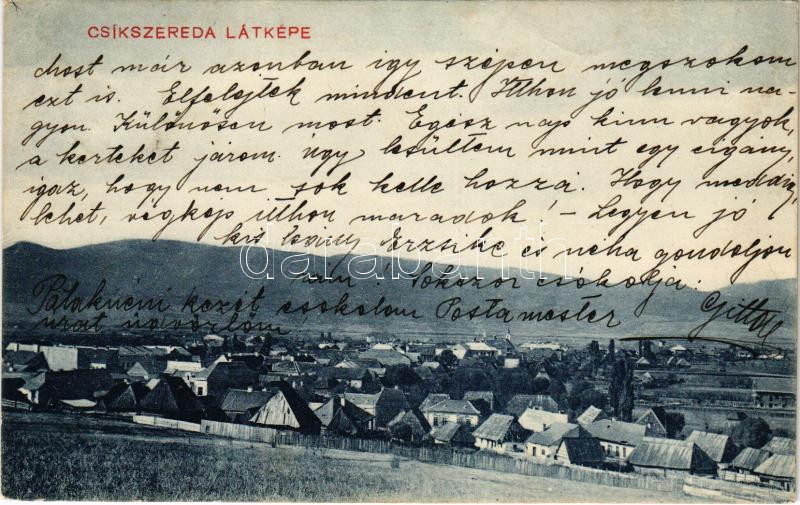 CSÍKSZEREDA LÁTKÉPE
Most már azonban igy szépen megszokom
ezt is. Elfelejtek mindent. Itthon jó lenni na-
gyon. Különösen most. Egész nap kinn vagyok,
a kerteket járom. Úgy lesültem mint egy cigány,
igaz, hogy nem sok kelle hozzá. Hogy meddig
lehet, végkép itthon maradok! - Legyen jó
kis leány Erzsike és néha gondoljon
rám! Sokszor csókolja:
Gitta
kezét csókolom Postamester
urat üdvözlöm
darabanth